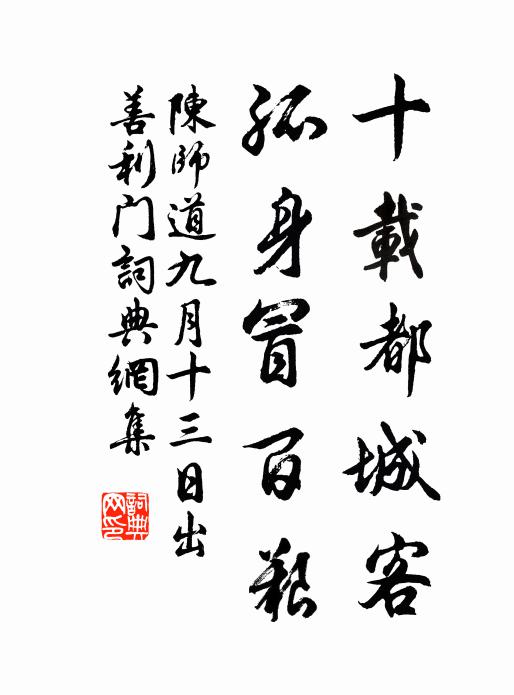 十載都城客
孤身冒百艱
陳師道九月十三日出
善利門詞典網集
詞典
网印